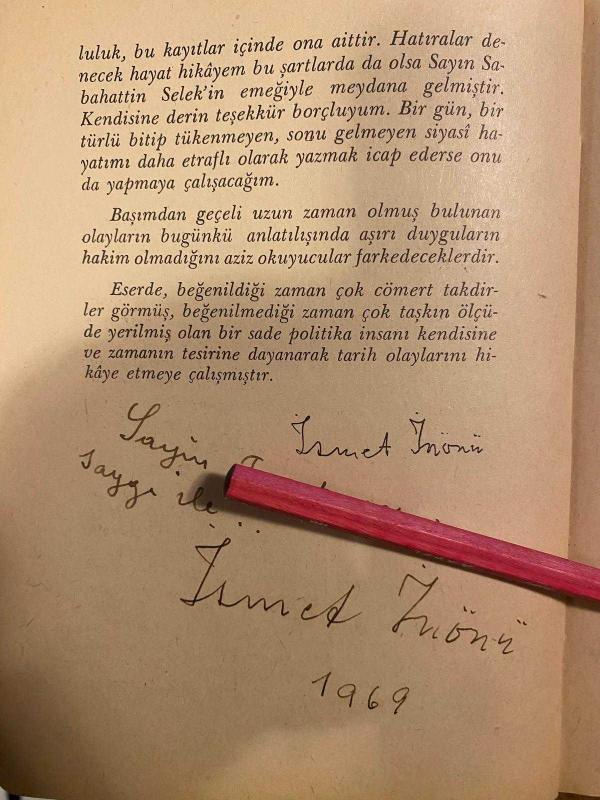 luluk, bu kayıtlar içinde ona aittir. Hatıralar de-
necek hayat hikâyem bu şartlarda da olsa Sayın Sa-
bahattin Selek'in emeğiyle meydana gelmiştir.
Kendisine derin teşekkür borçluyum. Bir gün, bir
türlü bitip tükenmeyen, sonu gelmeyen siyasî ha-
yatımı daha etraflı olarak yazmak icap ederse onu
da yapmaya çalışacağım.
Başımdan geçeli uzun zaman olmuş bulunan
olayların bugünkü anlatılışında aşırı duyguların
hakim olmadığını aziz okuyucular farkedeceklerdir.
Eserde, beğenildiği zaman çok cömert takdir-
ler görmüş, beğenilmediği zaman çok taşkın ölçü-
de yerilmiş olan bir sade politika insanı kendisine
ve zamanın tesirine dayanarak tarih olaylarını hi-
kâye etmeye çalışmıştır.
İsmet İnönü
Sayın
saygı ile
İsmet İnönü
1969